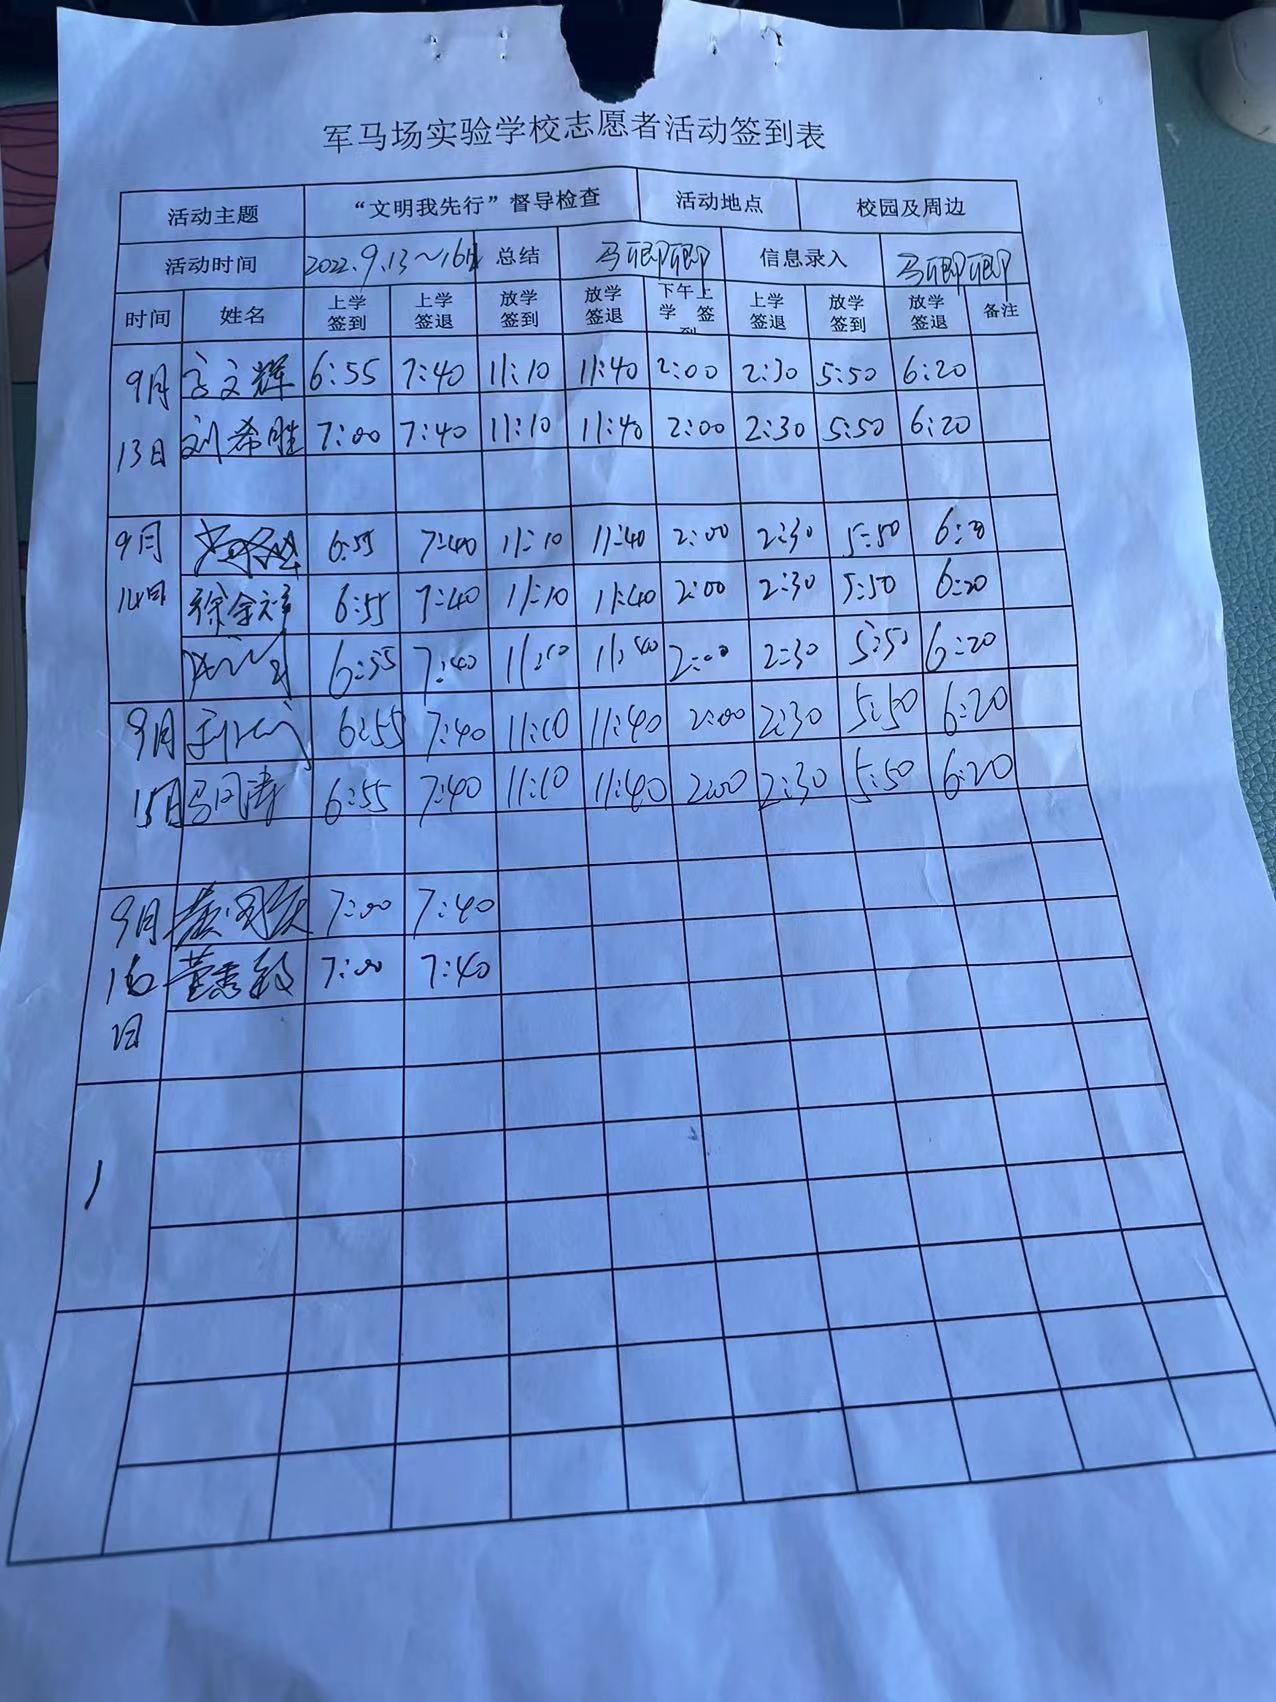 军马场实验学校志愿者活动签到表
活动主题 “文明我先行”督导检查 活动地点 校园及周边
活动时间 2022.9.13~16日 总结 马 信息录入 马
时间 姓名 上学签到 上学签退 放学签到 放学签退 下午上学签到 上学签退 放学签到 放学签退 备注
9月13日 文辉 6:55 7:40 11:10 11:40 2:00 2:30 5:50 6:20
刘希胜 7:00 7:40 11:10 11:40 2:00 2:30 5:50 6:20
9月14日 6:55 7:40 11:10 11:40 2:00 2:30 5:50 6:20
徐 6:55 7:40 11:10 11:40 2:00 2:30 5:50 6:20
6:55 7:40 11:10 11:40 2:00 2:30 5:50 6:20
9月15日 6:55 7:40 11:10 11:40 2:00 2:30 5:50 6:20
马 涛 6:55 7:40 11:10 11:40 2:00 2:30 5:50 6:20
9月16日 7:00 7:40
董秀 7:00 7:40